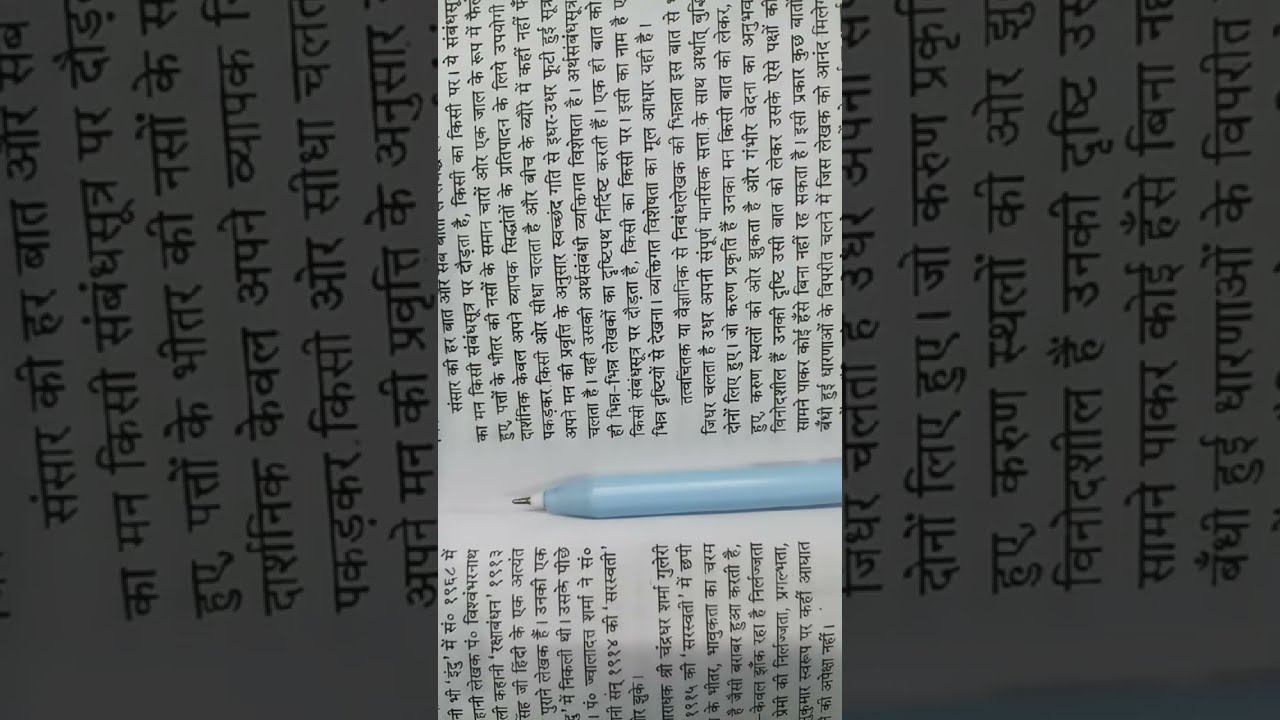 नी भी 'इंदु' में सं० १९६८ में
हानी लेखक पं० विश्वंभरनाथ
ली कहानी 'रक्षाबंधन' १९१३
सिंह जी हिंदी के एक अत्यंत
पुराने लेखक हैं। उनकी एक
दु' में निकली थी। उसके पीछे
। पं० ज्वालादत्त शर्मा ने सं०
नी सन् १९१४ की 'सरस्वती'
ओर झुके।
राधक श्री चंद्रधर शर्मा गुलेरी
१९१५ की 'सरस्वती' में छपी
के भीतर, भावुकता का चरम
है जैसी बराबर हुआ करती है,
-केवल झाँक रहा है निर्लज्जता
प्रेमी की निर्लज्जता, प्रगल्भता,
सुकुमार स्वरूप पर कहीं आघात
की अपेक्षा नहीं।
संसार की हर बात और सब बातों से
का मन किसी संबंधसूत्र पर दौड़ता है, किसी का किसी पर। ये संबंधसूत्र
हुए, पत्तों के भीतर की नसों के समान चारों ओर एक जाल के रूप में फैले
दार्शनिक केवल अपने व्यापक सिद्धातों के प्रतिपादन के लिये उपयोगी
पकड़कर किसी ओर सीधा चलता है और बीच के ब्यौरे में कहीं नहीं
अपने मन की प्रवृत्ति के अनुसार स्वच्छंद गति से इधर-उधर फूटी हुई सूत्र
चलता है। यही उसकी अर्थसंबंधी व्यक्तिगत विशेषता है। अर्थसंबंधसूत्र
ही भिन्न-भिन्न लेखकों का दृष्टिपथ निर्दिष्ट करती हैं। एक ही बात को
किसी संबंधसूत्र पर दौड़ता है, किसी का किसी पर। इसी का नाम है ए
भिन्न दृष्टियों से देखना। व्यक्तिगत विशेषता का मूल आधार यही है।
तत्वचिंतक या वैज्ञानिक से निबंधलेखक की भिन्नता इस बात से भ
जिधर चलता है उधर अपनी संपूर्ण मानसिक सत्ता के साथ अर्थात् बुद्धि
दोनों लिए हुए। जो करुण प्रकृति हैं उनका मन किसी बात को लेकर,
हुए, करुण स्थलों की ओर झुकता है और गंभीर वेदना का अनुभव
विनोदशील हैं उनकी दृष्टि उसी बात को लेकर उसके ऐसे पक्षों की
सामने पाकर कोई हँसे बिना नहीं रह सकता है। इसी प्रकार कुछ बातों
बँधी हुई धारणाओं के विपरीत चलने में जिस लेखक को आनंद मिलेग